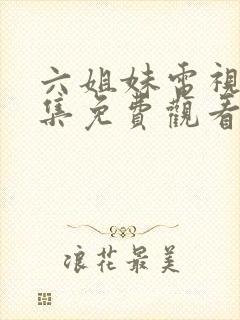 六姐妹電視
集免費觀看
浪花最美